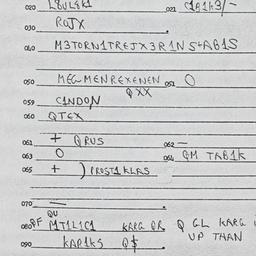 020 L8ULEK1 021 C1B1K3/-
030 ROJX
040 M3TORN1TREJX3R1N S4AB1S
050 MEGMENREXENEN 051 O
QXX
059 C1NDON
060 QTEX
061 + QRUS 062 -
063 O 064 GM TAB1K
065 + ) PROST1KLAS
070 -
QU
080 RF MT1L1C1 KARG QR Q GL KARG
UP THAN
090 KAP1KS Q$